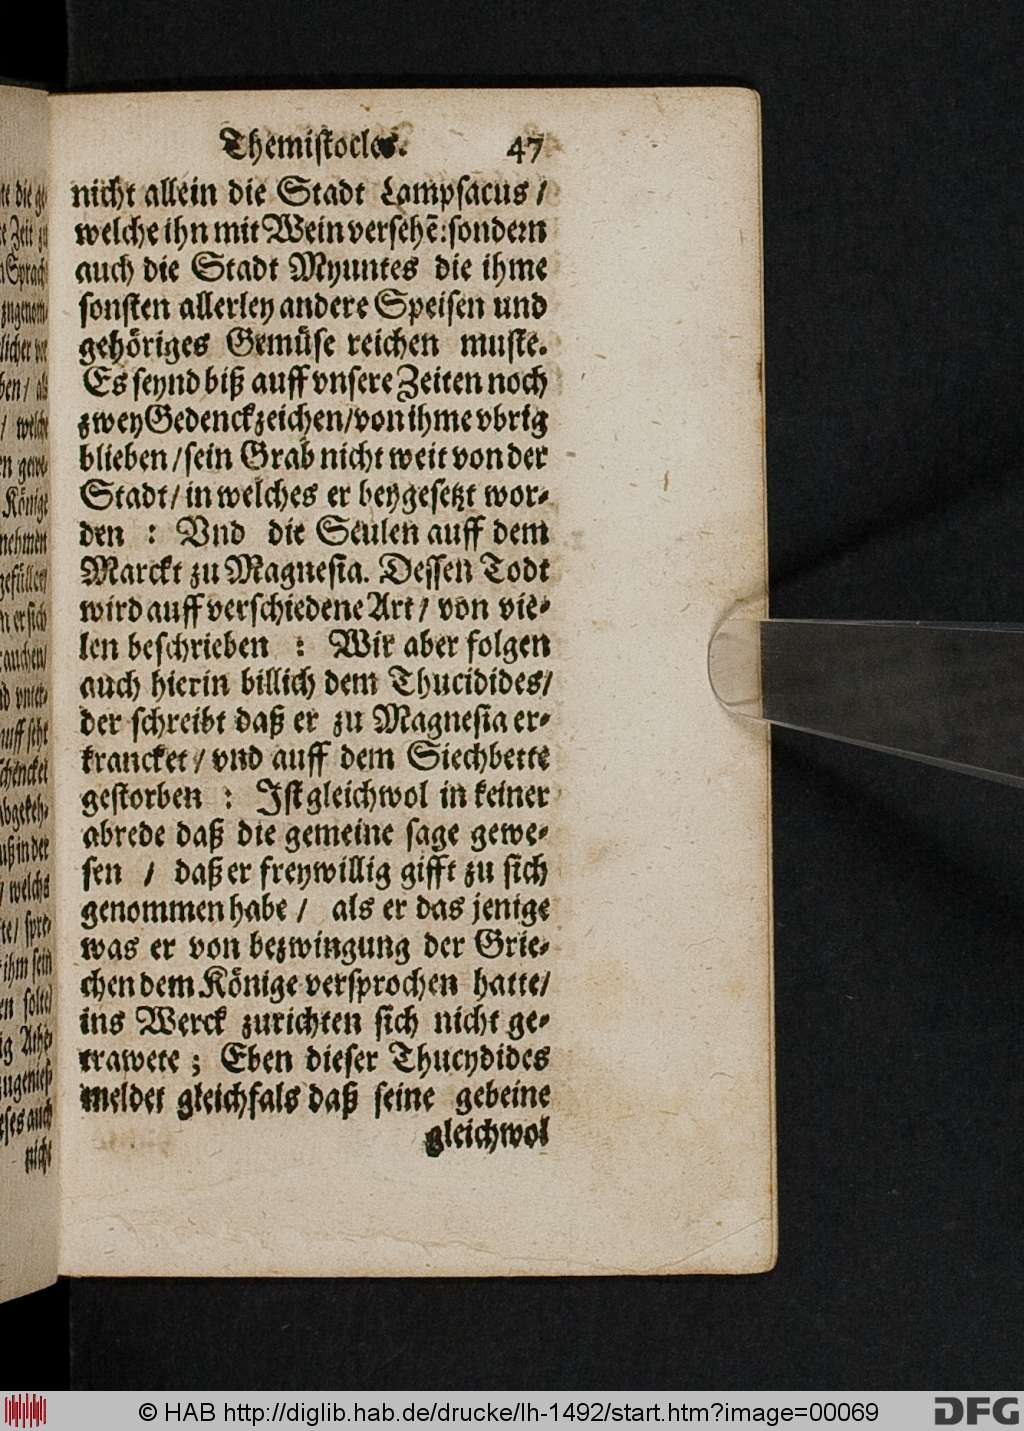 Themistocles. 47
nicht allein die Stadt Lampsacus /
welche ihn mit Wein versehē: sondern
auch die Stadt Myuntes die ihme
sonsten allerley andere Speisen und
gehöriges Gemüse reichen muste.
Es seynd biß auff vnsere Zeiten noch
zwey Gedenckzeichen/von ihme vbrig
blieben / sein Grab nicht weit von der
Stadt / in welches er beygesetzt wor-
den : Vnd die Seulen auff dem
Marckt zu Magnesia. Dessen Todt
wird auff verschiedene Art / von vie-
len beschrieben : Wir aber folgen
auch hierin billich dem Thucidides/
der schreibt daß er zu Magnesia er-
krancket / vnd auff dem Siechbette
gestorben : Ist gleichwol in keiner
abrede daß die gemeine sage gewe-
sen / daß er freywillig gifft zu sich
genommen habe / als er das jenige
was er von bezwingung der Grie-
chen dem Könige versprochen hatte/
ins Werck zurichten sich nicht ge-
trawete ; Eben dieser Thucydides
meldet gleichfals daß seine gebeine
gleichwol
© HAB http://diglib.hab.de/drucke/lh-1492/start.htm?image=00069
DFG